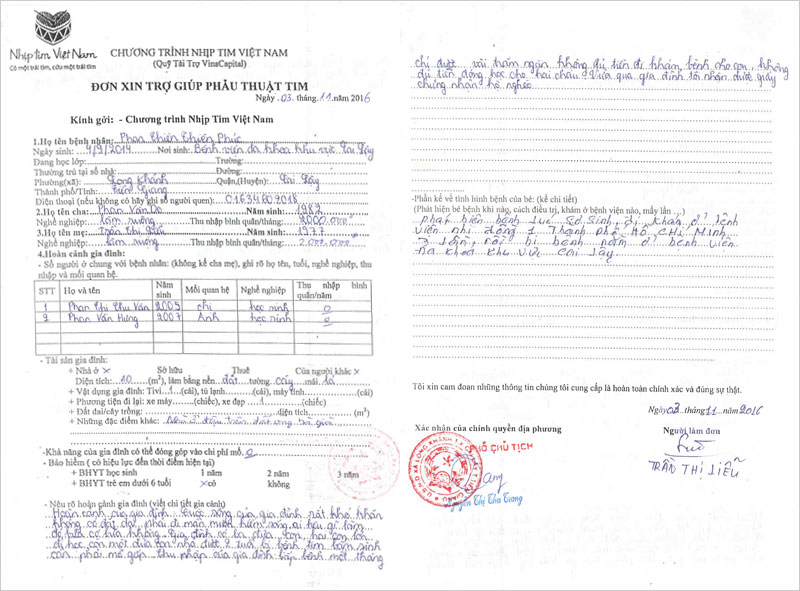 Nhịp Tim Việt Nam
Có một trái tim, cứu một trái tim
CHƯƠNG TRÌNH NHỊP TIM VIỆT NAM
(Quỹ Tài Trợ VinaCapital)
ĐƠN XIN TRỢ GIÚP PHẪU THUẬT TIM
Ngày 03 tháng 11 năm 2016
Kính gửi: - Chương trình Nhịp Tim Việt Nam
1.Họ tên bệnh nhân: Phan Thiên Thiên Phúc
Ngày sinh: 4/9/2014 Nơi sinh: Bệnh viện đa khoa khu vực Cai Lậy
Đang học lớp: Trường:
Thường trú tại số nhà: Đường:
Phường(xã): Long Khánh Quận,(Huyện): Cai Lậy
Thành phố/Tỉnh: Tiền Giang
Điện thoại (nếu không có hãy ghi số người quen): 01634802018
2.Họ tên cha: Phan Văn Năm sinh: 1982
Nghề nghiệp: làm mướn Thu nhập bình quân/tháng: 2.000.000
3.Họ tên mẹ: Trần Thị Liễu Năm sinh: 1977
Nghề nghiệp: làm mướn Thu nhập bình quân/tháng: 2.000.000
4.Hoàn cảnh gia đình:
- Số người ở chung với bệnh nhân: (không kể cha mẹ), ghi rõ họ tên, tuổi, nghề nghiệp, thu
nhập và mối quan hệ.
STT Họ và tên Năm sinh Mối quan hệ Nghề nghiệp Thu nhập bình quân/năm
1 Phan Thị Thu Vân 2005 chị học sinh 0
2 Phan Văn Hưng 2007 Anh học sinh 0
- Tài sản gia đình:
+ Nhà ở x Sở hữu Thuê Của người khác x
Diện tích: 10 (m²), làm bằng nền đất tường cây mái lá
+ Vật dụng gia đình: Tivi 1 (cái), tủ lạnh (cái), máy tính (cái)
+ Phương tiện đi lại: xe máy (chiếc), xe đạp 1 (chiếc)
+ Đất đai/cây trồng: diện tích (m²)
+ Những đặc điểm khác:
-Khả năng của gia đình có thể đóng góp vào chi phí mổ: 0
- Bảo hiểm ( có hiệu lực đến thời điểm hiện tại)
+ BHYT học sinh 1 năm 2 năm 3 năm
+ BHYT trẻ em dưới 6 tuổi x có không
- Nêu rõ hoàn cảnh gia đình (viết chi tiết gia cảnh)
Hoàn cảnh của gia đình: cuộc sống của gia đình rất khó khăn
không có đất đai phải đi mần mướn hằng ngày ai kêu gì làm
đó bữa có bữa không. Gia đình có ba đứa con, hai con lớn
đi học con một đứa con nhỏ được 2 tuổi bị bệnh tim bẩm sinh
cần phải mổ gấp. Thu nhập của gia đình bấp bênh một tháng
chỉ được vài trăm ngàn không đủ tiền đi khám bệnh cho con, không
đủ tiền đóng học cho hai cháu. Vừa qua gia đình tôi nhận được giấy
chứng nhận hộ nghèo.
-Phần kể về tình hình bệnh của bé: (kể chi tiết)
(Phát hiện bé bệnh khi nào, cách điều trị, khám ở bệnh viện nào, mấy lần ...)
phát hiện bệnh lúc sơ sinh, đi khám ở bệnh
viện nhi đồng 1 Thành Phố Hồ Chí Minh
3 lần, rồi bị bệnh nằm ở bệnh viện
đa khoa khu vực Cai Lậy.
Tôi xin cam đoan những thông tin chúng tôi cung cấp là hoàn toàn chính xác và đúng sự thật.
Ngày 03 tháng 11 năm 2016
Xác nhận của chính quyền địa phương Người làm đơn
PHÓ CHỦ TỊCH
Nguyễn Thị Thu Trong
TRẦN THỊ LIỄU